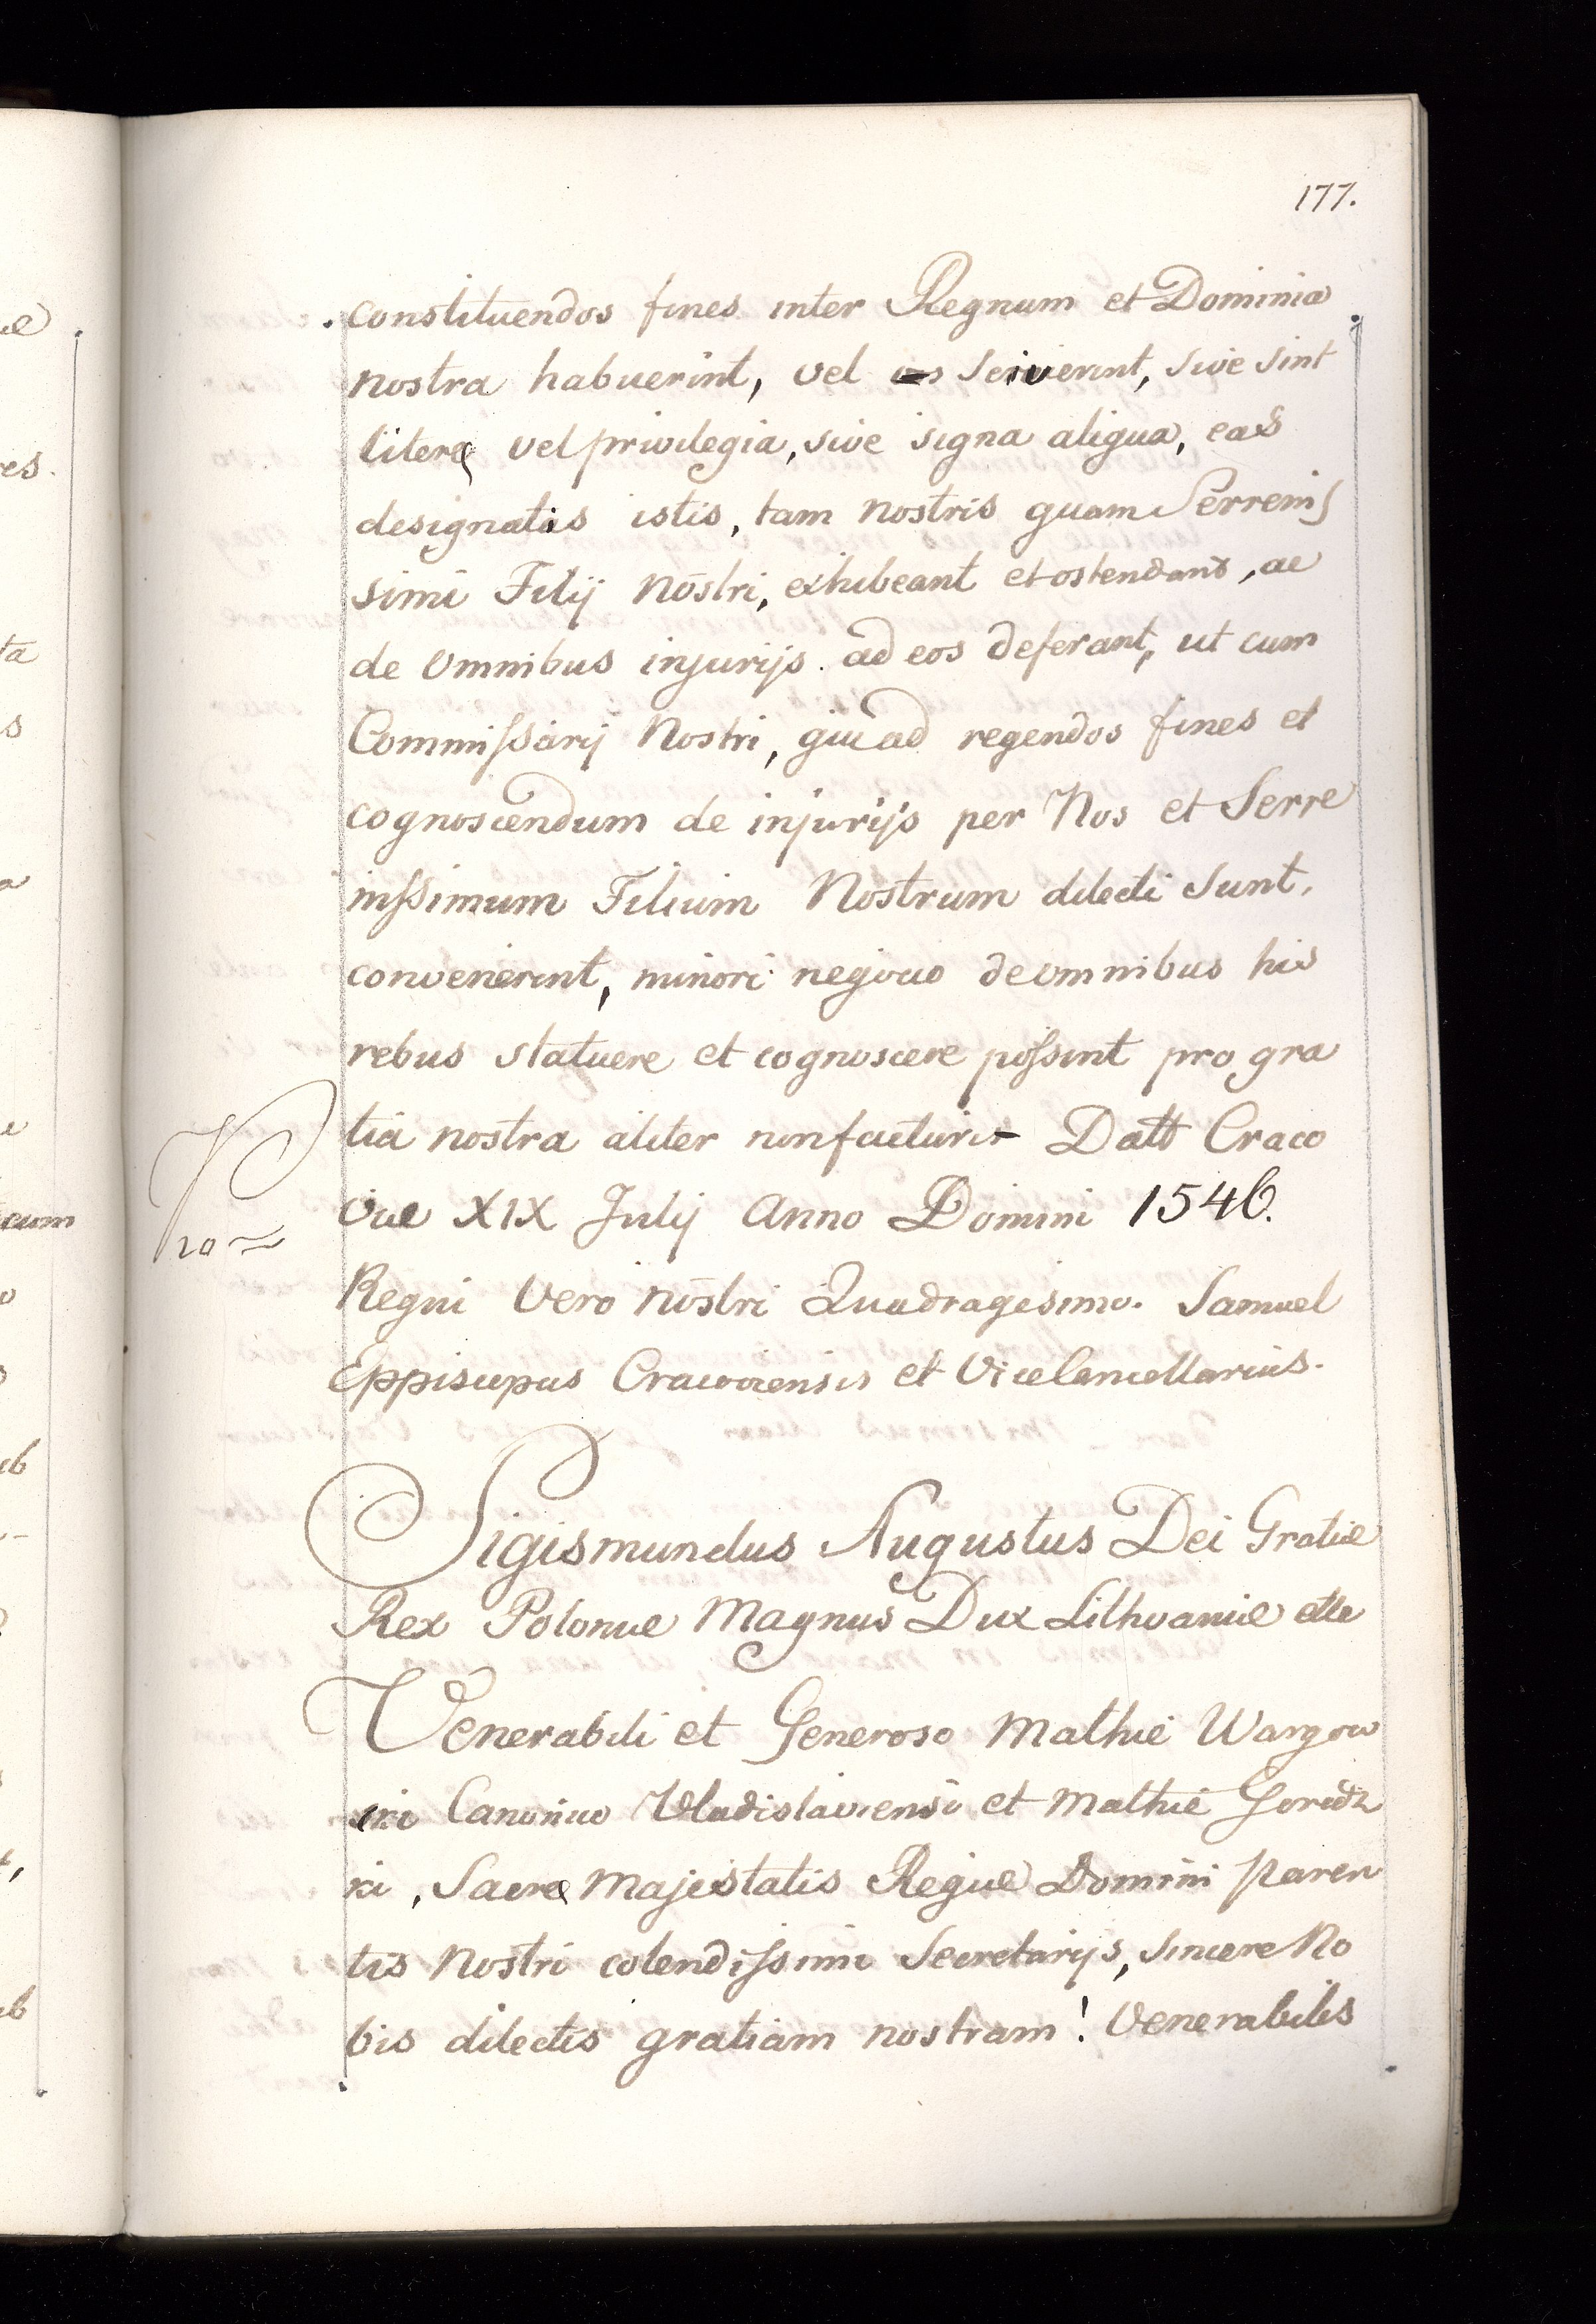 177.
constituendos fines inter Regnum et Dominia
nostra habuerint, vel sciverint, sive sint
litere vel privilegia, sive signa aliqua, eas
designatis istis, tam nostris quam Serrenis
simi Filij nostri, exhibeant et ostendant, ac
de omnibus injurijs. ad eos deferant, ut cum
Commissarij Nostri, qui ad regendos fines et
cognoscendum de injurijs per Nos et Serre
nissimum Filium Nostrum dilecti sunt,
convenerint, minori negocio de omnibus his
rebus statuere et cognoscere possint pro gra
tia nostra aliter non facturis Datt Craco
viae XIX Julij Anno Domini 1546.
Regni Vero nostri Quadragesimo. Samuel
Eppiscopus Cracoviensis et ViceCancellarius.
Sigismundus Augustus Dei Gratie
Rex Polonie Magnus Dux Lithvanie ette
Venerabili et Generoso Mathie Wargow
ski Canonico Vladislaviensi et Mathie Goredz
ki, Sacre Majestatis Regie Domini Paren
tis Nostri colendissimi Secretarijs, sincere No
bis dilectis gratiam nostram! Venerabiles